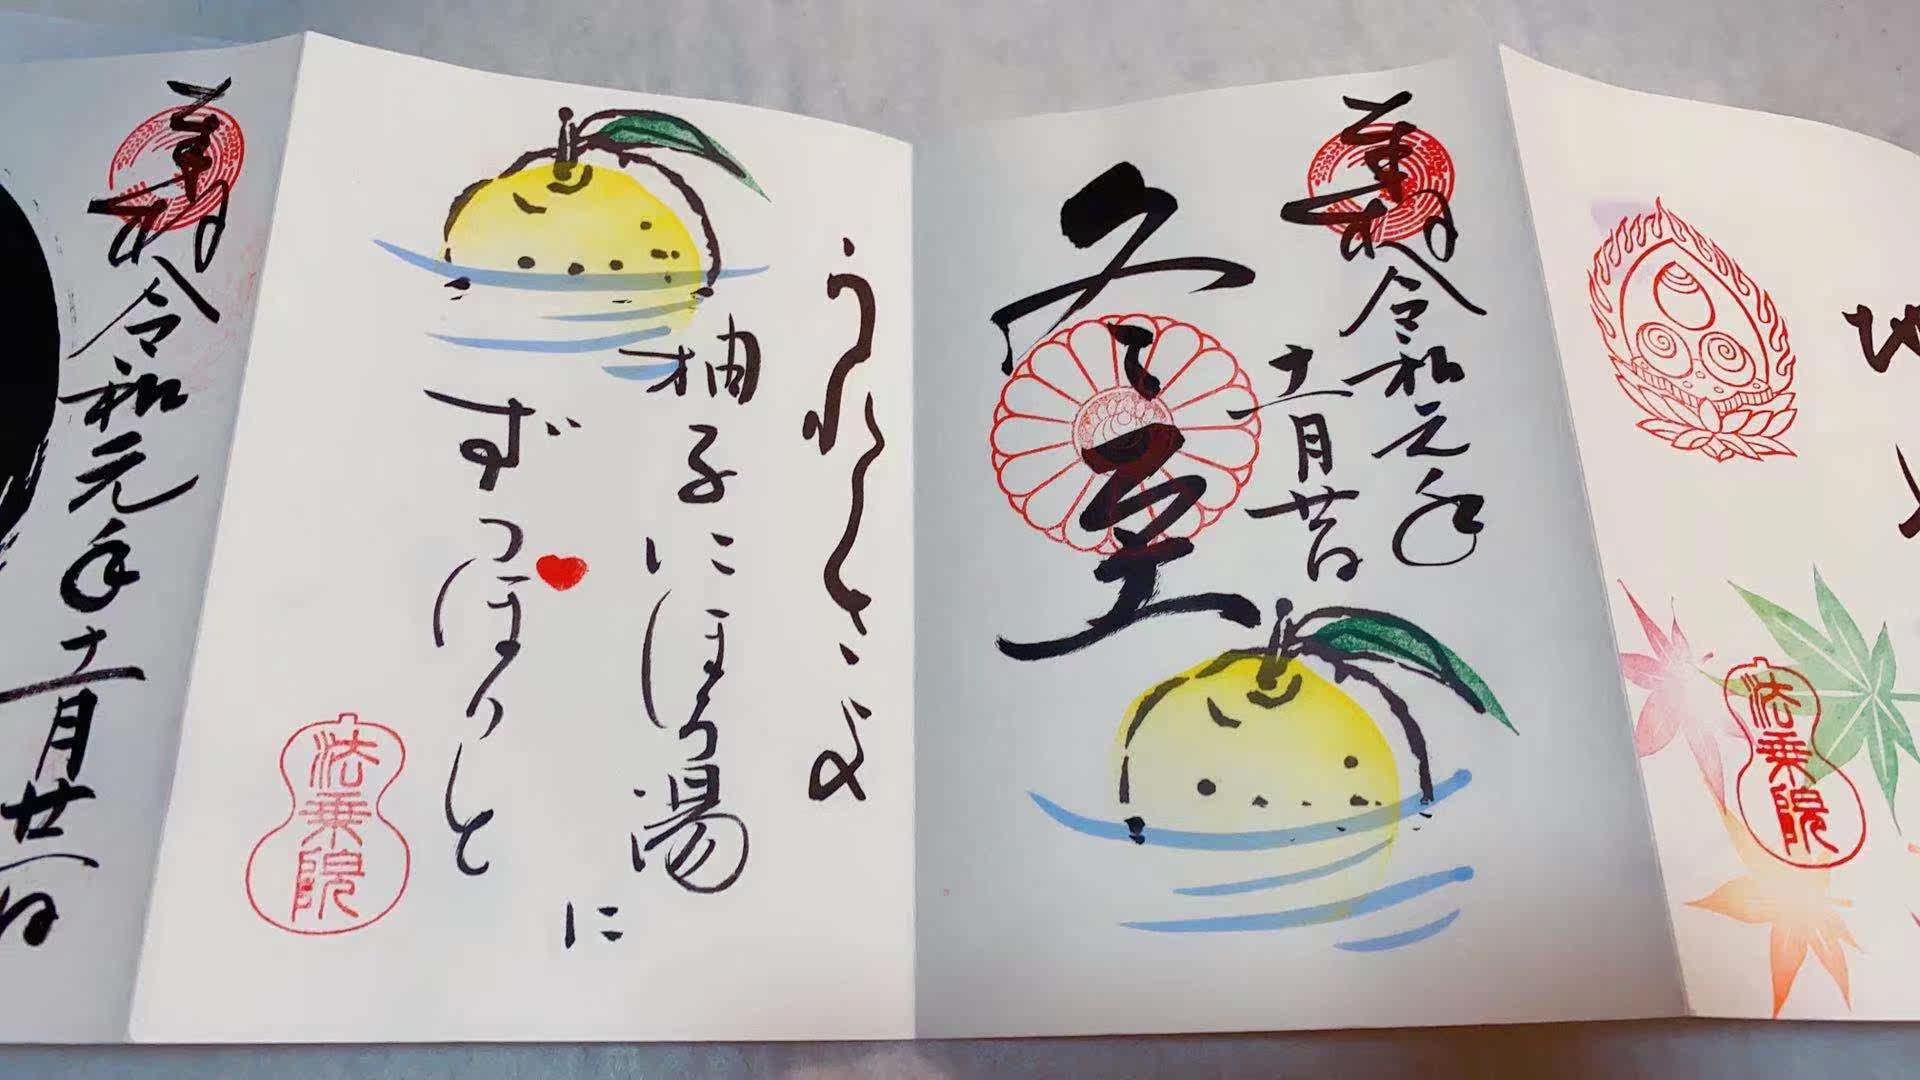 地
法乗院
奉拝 令和元年
十二月廿二日
冬至
うれしさよ
柚子にほう湯
に
ずっぽりと
法乗院
奉拝 令和元年十二月廿二日